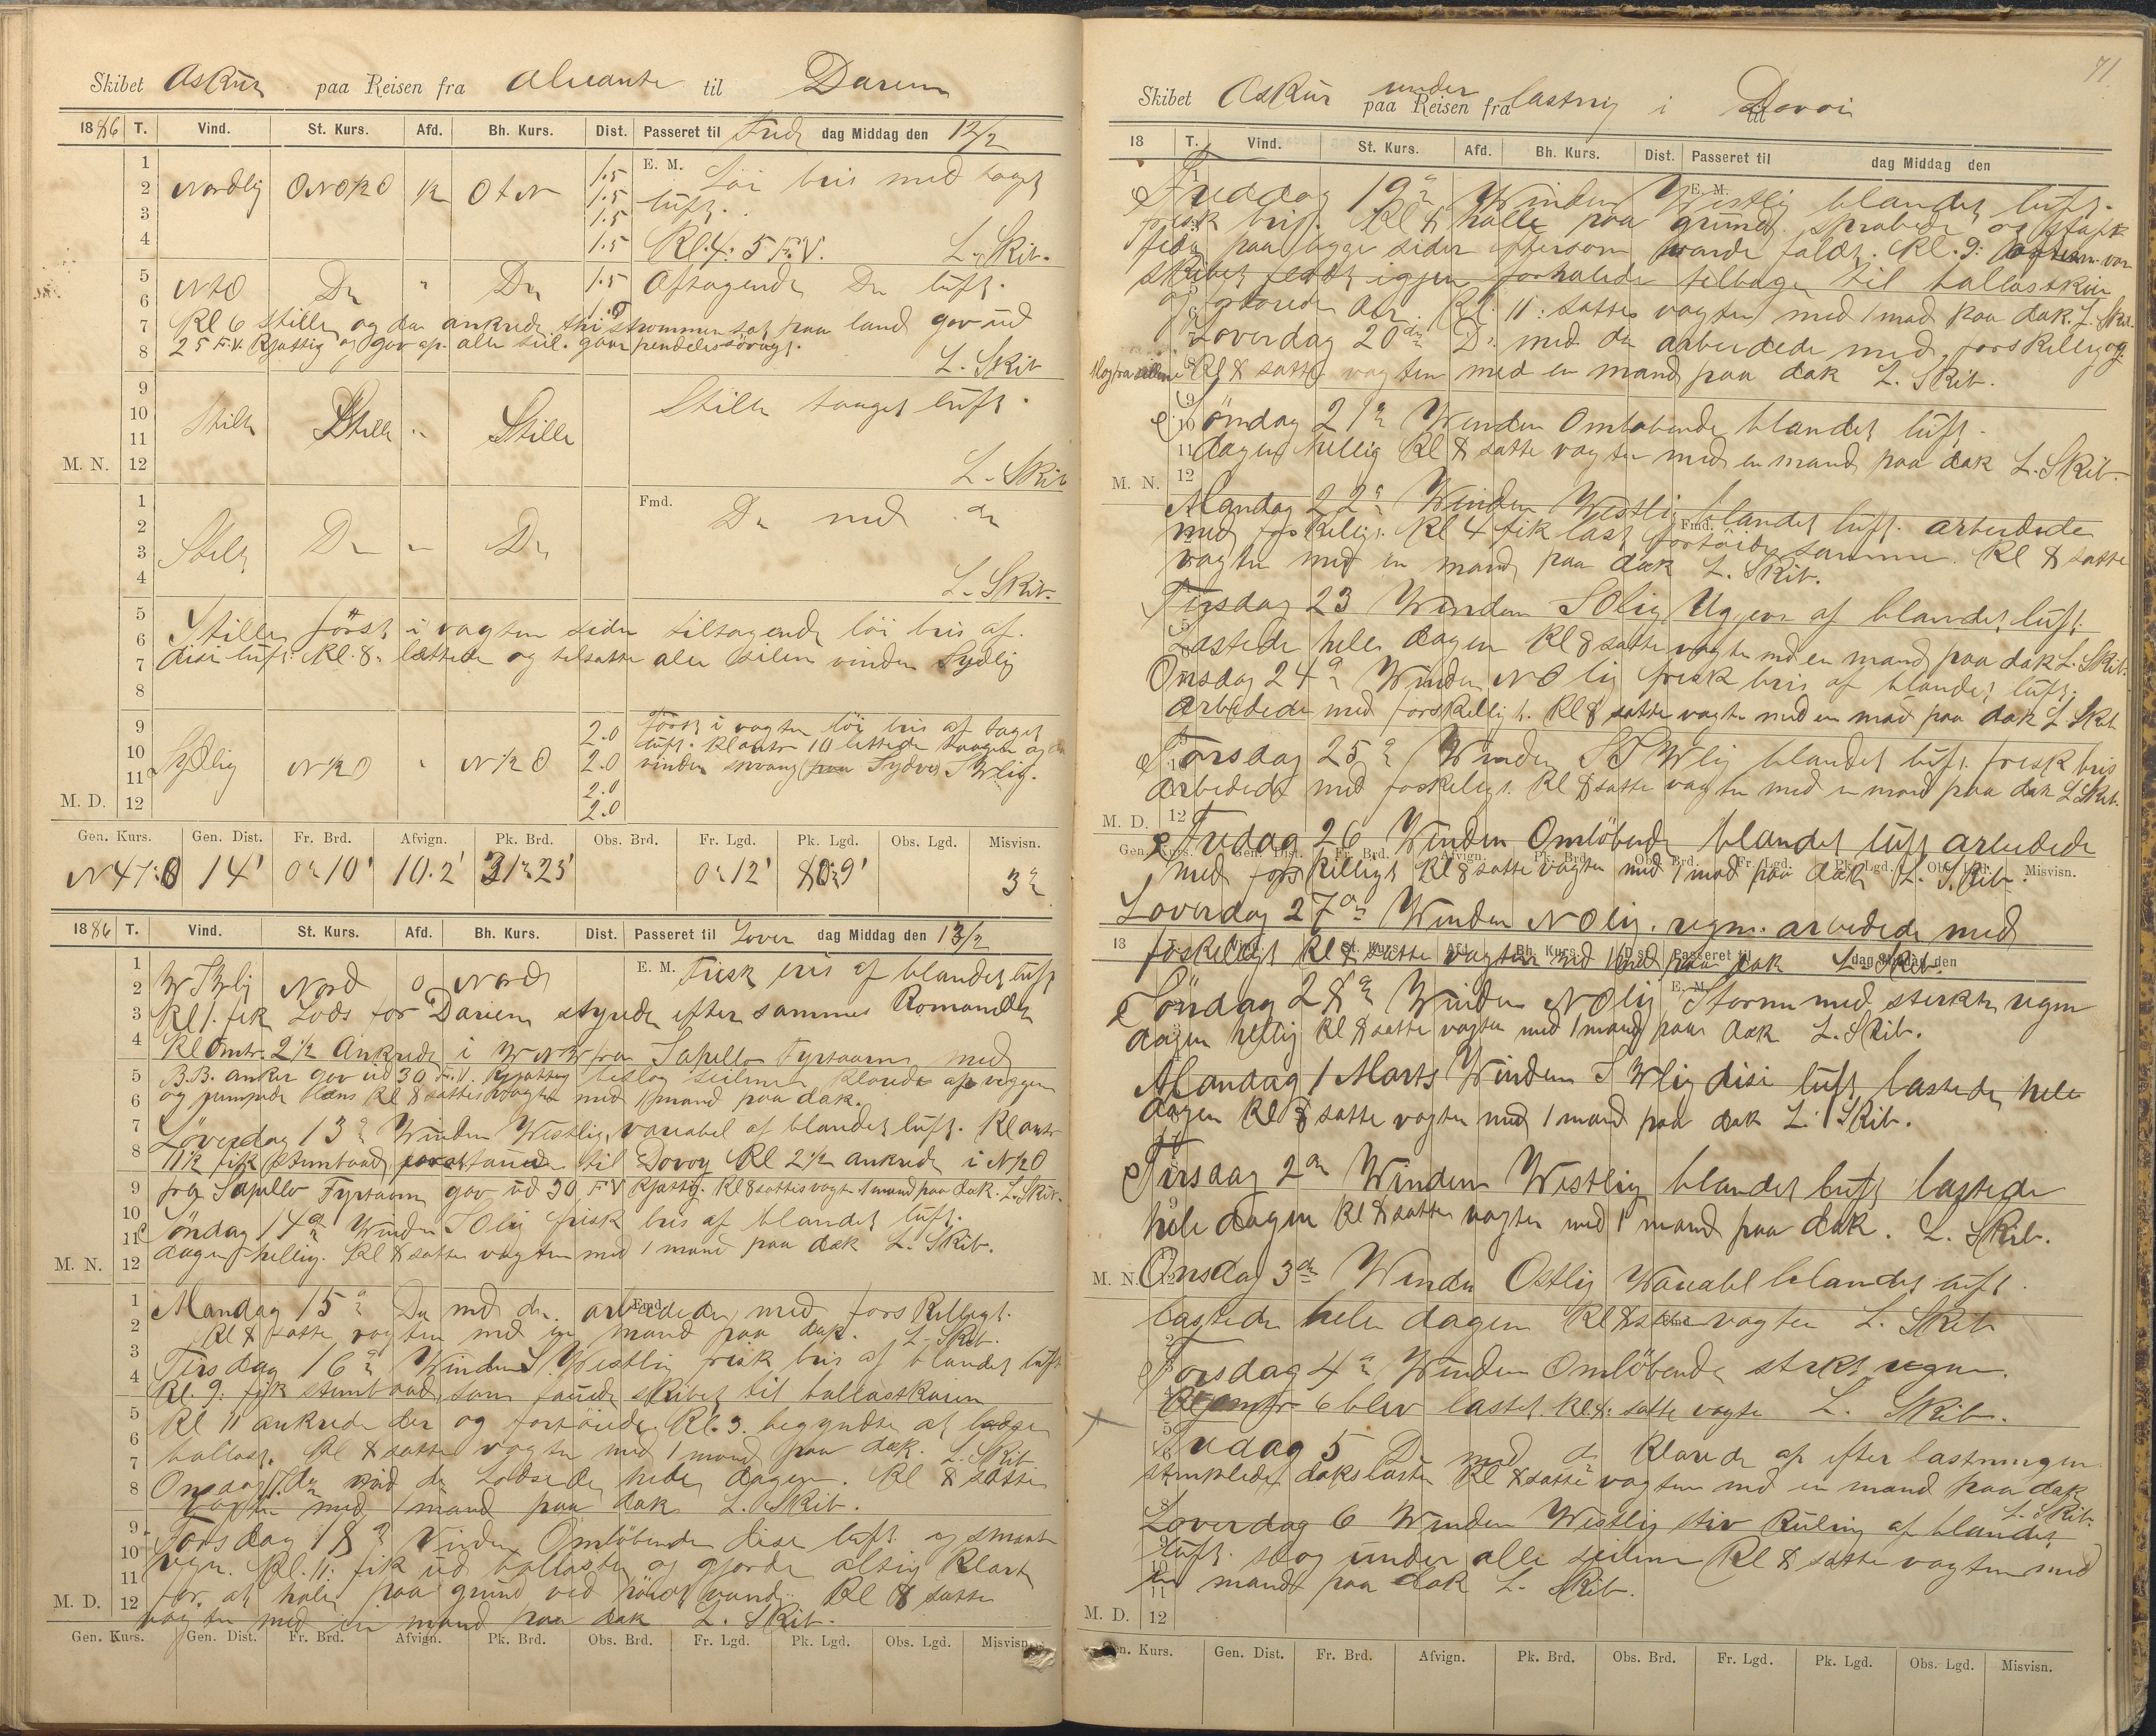 Skibet Askur paa Reisen fra Alicante til Darien
1886 T. Vind. St. Kurs. Afd. Bh. Kurs. Dist. Passeret til Fred dag Middag den 12/2
E. M. Löi bris med taaget
Nordlig ONO½O ½ OtN 1.5 1.5 1.5 1.5 luft.
Kl. 4: 5 F.V. L. Skib.
NtO Do " Do 1.5 Aftagende Do luft.
Kl 6 stille og da ankrede thi strømmen sat paa land gav ud
25 F.V. Kjætting og gav op alle seil.
L. Skib
Stille Stille " Stille Stille taaget luft.
M. N. 12
L. Skib
Fmd. Do med do
Stille Do " Do
L. Skib.
Stille först i vagten siden tiltagende löi bris af
disi luft. Kl. 8: lættede og tilsatte alle seilene vinden Sydlig
Sydlig N½O " N½O 2.0 2.0 2.0 2.0 Först i vagten löi bris af taaget
luft. Kl omtr 10 lettede taagen og da
vinden sprang paa Sydvest SWlig.
M. D. 12
Gen. Kurs. Gen. Dist. Fr. Brd. Afvign. Pk. Brd. Obs. Brd. Fr. Lgd. Pk. Lgd. Obs. Lgd. Misvisn.
N47:O 14' 0° 10' 10.2' 31° 25' 0° 12' 80° 9' 3°
1886 T. Vind. St. Kurs. Afd. Bh. Kurs. Dist. Passeret til Löver dag Middag den 13/2
WSWlig Nord 0 Nord E. M. Frisk bris af blandet luft
Kl 1. fik Lods for Darien styrede efter sammes Komando
Kl omtr. 2½ Ankrede i WNW fra Sapello Fyrtaarn med
B.B. anker gav ud 30 F.V. Kjætting beslog seilene klarede op
og pumpede læns Kl 8 sattes vagten med 1 mand paa dæk.
Löverdag 13de Winden Westlig, variabel af blandet luft. Kl omtr
11½ fik Stimbaad tauede til Dovoy Kl 2½ ankrede i N½O
fra Sapello Fyrtaarn gav ud 30 F.V Kjætting. Kl 8 sattes vagt 1 mand paa dæk. L. Skib.
Söndag 14de Winden SOlig frisk bris af blandet luft.
M. N. 12 dagen hellig. Kl 8 satte vagten med 1 mand paa dæk L. Skib.
Mandag 15de Do med do. arbeidede med forskelligt.
Kl 8 satte vagten med en mand paa dæk. L. Skib.
Tirsdag 16de Winden S.Westlig frisk bris af blandet luft
Kl. 9: fik stimbaad som tauede skibet til ballastkaien
Kl 11 ankrede der og fortöiede. Kl. 3. begyndte at losse
ballast. Kl 8 satte vagten med 1 mand paa dæk. L. Skib
Onsdag 17de Do med do Lodsede hele dagen. Kl 8 satte
vagten med 1 mand paa dæk L. Skib.
Torsdag 18de Vinden Omlöbende disi luft og smaat
regn. Kl. 11: fik ud ballasten og gjorde alting klart
for at hale paa grund ved höit vand. Kl 8 satte
M. D. 12 vagten med en mand paa dæk L. Skib.
Gen. Kurs. Gen. Dist. Fr. Brd. Afvign. Pk. Brd. Obs. Brd. Fr. Lgd. Pk. Lgd. Obs. Lgd. Misvisn.
71.
Skibet Askur under paa Reisen fra lastnig i til Dovoi
18 T. Vind. St. Kurs. Afd. Bh. Kurs. Dist. Passeret til dag Middag den
Fredag 19de Winden Westlig blandet luft.
frisk bris. Kl 8 halte paa grund skrabede og
paa begge sider eftersom vande faldt. Kl. 9:
skibet flødt igjen forhalede tilbage til ballastkaien
og der. Kl. 11: sattes vagten med 1 mad paa dæk. L. Skib.
Löverdag 20de Do med do arbeidede med forskellig og
Kl 8 satte vagten med en mand paa dæk L. Skib.
Söndag 21de Winden Omløbende blandet luft.
dagen hellig Kl 8 satte vagten med en mand paa dæk L. Skib.
M. N. 12
Mandag 22de Winden Westlig blandet luft. arbeidede
med forskelligt. Kl 4 fik last fortöiede samme. Kl 8 satte
vagten med en mand paa dæk L. Skib.
Tirsdag 23 Winden SOlig af blandet luft.
Lastede hele dagen Kl 8 satte vagten md en mand paa dæk L. Skib.
Onsdag 24de Winden NOlig frisk bris af blandet luft.
Arbeidede med forskelligt. Kl 8 satte vagten med en mad paa dæk L Skib
Torsdag 25de Winden SSWlig blandet luft frisk bris
Arbedede med foskeligt. Kl 8 satte vagten med en mand paa dæk L Skib.
M. D. 12
Fredag 26 Winden Omlöbende blandet luft arbeidede
med forskelligt Kl 8 satte vagten med 1 mad paa dæk L. Skib.
Gen. Kurs. Gen. Dist. Fr. Brd. Afvign. Pk. Brd. Obs. Brd. Fr. Lgd. Pk. Lgd. Obs. Lgd. Misvisn.
Loverdag 27de Winden NOlig. regn. arbedede med
18 T. Vind. St. Kurs. Afd. Bh. Kurs. Dist. Passeret til dag Middag den
foskelligt Kl 8 satte vagten md 1 md paa dæk L. Skib.
Söndag 28de Winden NOlig Storm med sterkt regn
dagen hellig Kl 8 satte vagten med 1 mand paa dæk L. Skib.
Mandag 1 Marts Winden SWlig disi luft, lastede hele
dagen Kl 8 satte vagten med 1 mand paa dæk L. Skib.
Tirsdag 2de Winden Westlig blandet luft lastede
hele dagen Kl 8 satte vagten med 1 mand paa dæk. L. Skib.
M. N. 12 Onsdag 3de Winden Ostlig Wariabl blandet luft.
lastede hele dagen Kl 8 satte vagten L. Skib
Torsdag 4de Winden Omlöbende sterkt regn.
Kl omtr 6 blev lastet. Kl 8: satte vagten L. Skib.
Fredag 5 Do med do klarede op efter lastningen
stemplede dækslasten Kl 8 satte vagten md en mand paa dæk
L. Skib.
Loverdag 6 Winden Westlig stiv Kuling af blandet
luft. slog under alle seilene Kl 8 satte vagten med
en mand paa dæk L. Skib.
M. D. 12
Gen. Kurs. Gen. Dist. Fr. Brd. Afvign. Pk. Brd. Obs. Brd. Fr. Lgd. Pk. Lgd. Obs. Lgd. Misvisn.